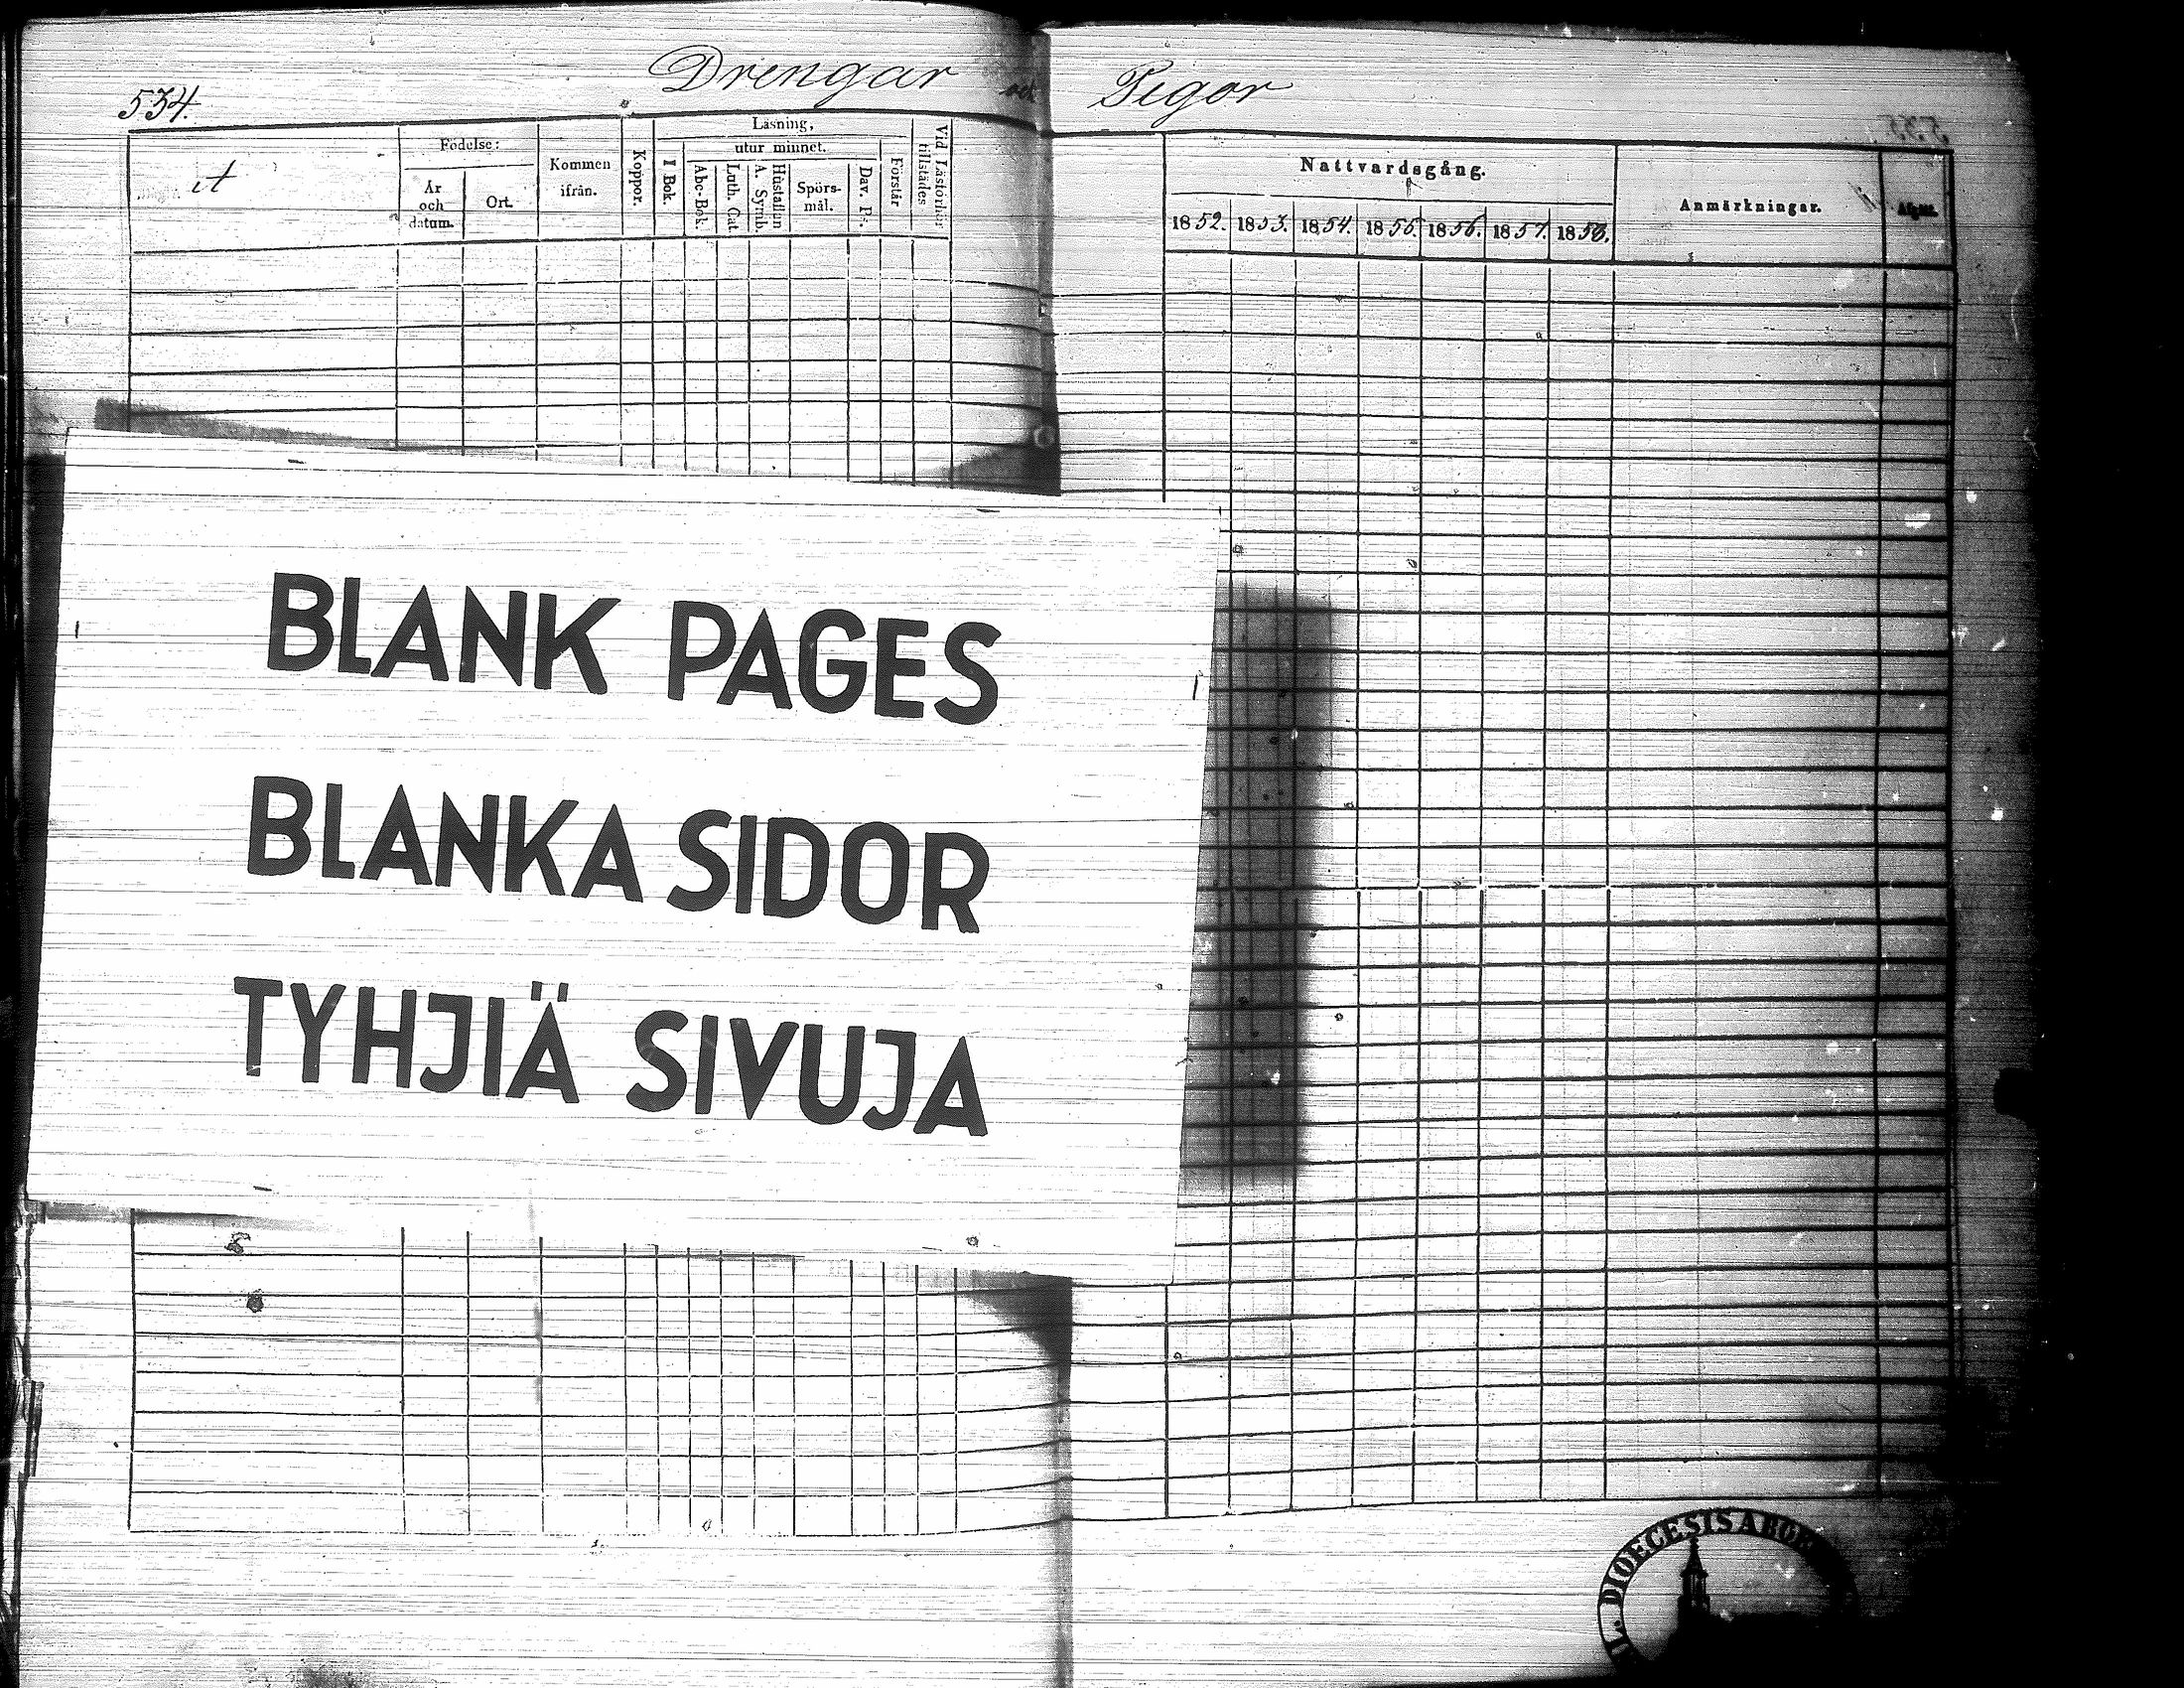 534.
Drengar och Pigor
it
Födelse:
År
och
datum.
Ort.
Kommen
ifrån.
Koppor.
Läsning,
I Bok.
utur minnet.
Abc-Bok.
Luth. Cat.
Hustaflan
A. Symb.
Spörs-
mål.
Dav. Ps.
Förstår
Vid Läsförhör
tillstädes
Nattvardsgång.
1852. 1853. 1854. 1855. 1856. 1857. 1858.
Anmärkningar.
BLANK PAGES
BLANKA SIDOR
TYHJIÄ SIVUJA
DIOECESIS ABOE